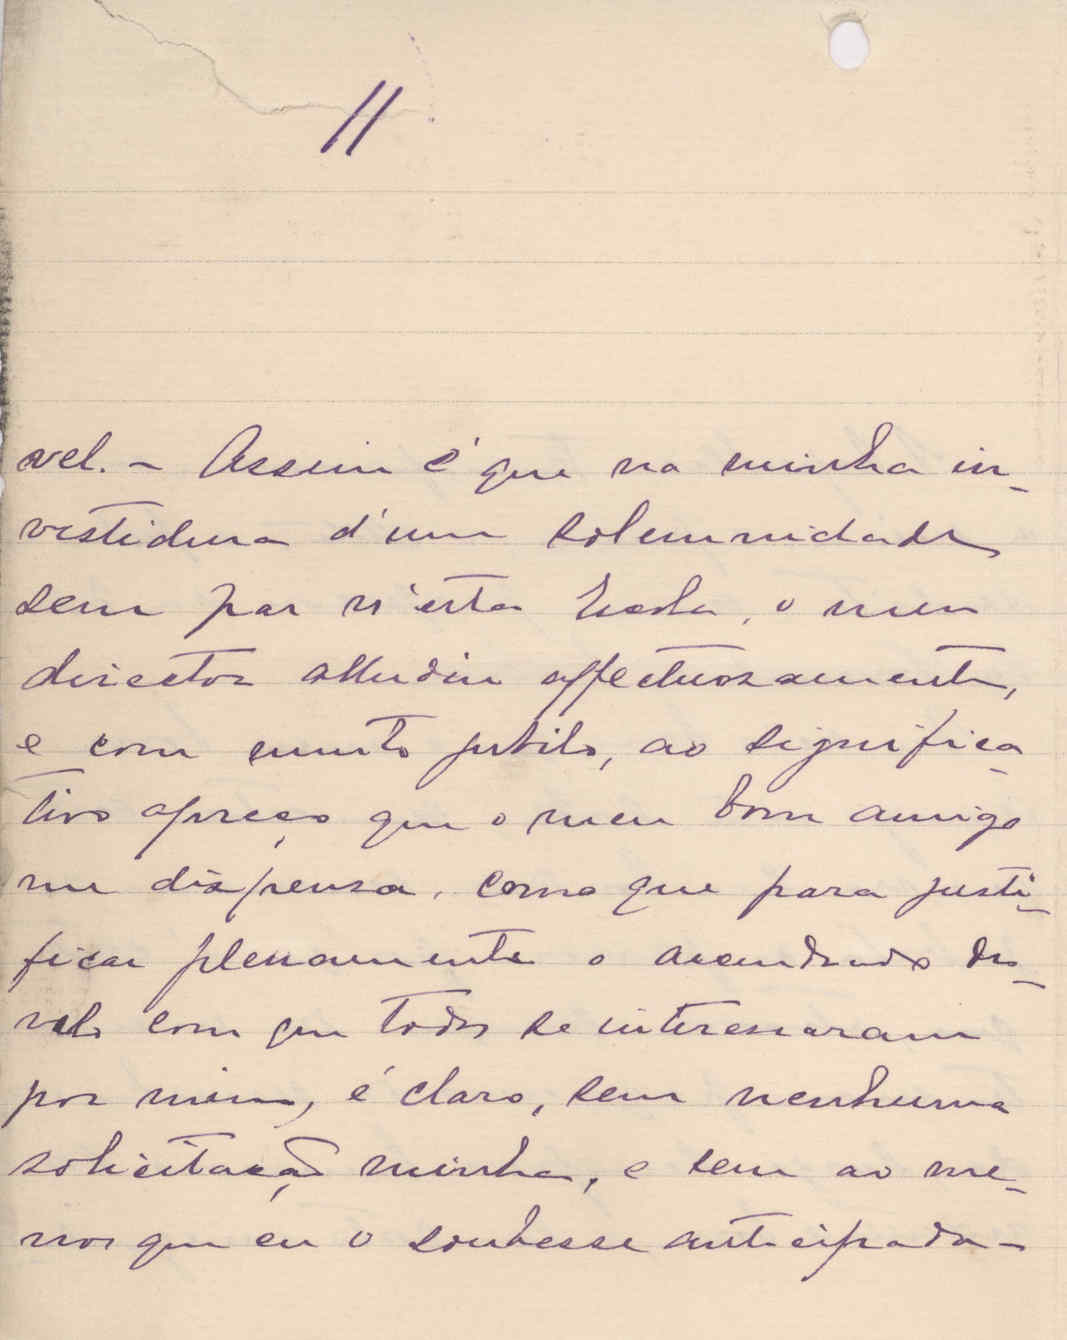 11
vel. - Assim é que na minha in-
vestidura d'um solemnidade
sem par n'esta Escola, o meu
director alludiu affectuosamente,
e com muito jubilo, ao significa-
tivo apreço que o meu bom amigo
me dispensa, como que para justi-
ficar plenamente o acendrado des-
velo com que todos se interessaram
por mim, é claro, sem nenhuma
solicitação minha, e sem ao me-
nos que eu o soubesse anticipada-